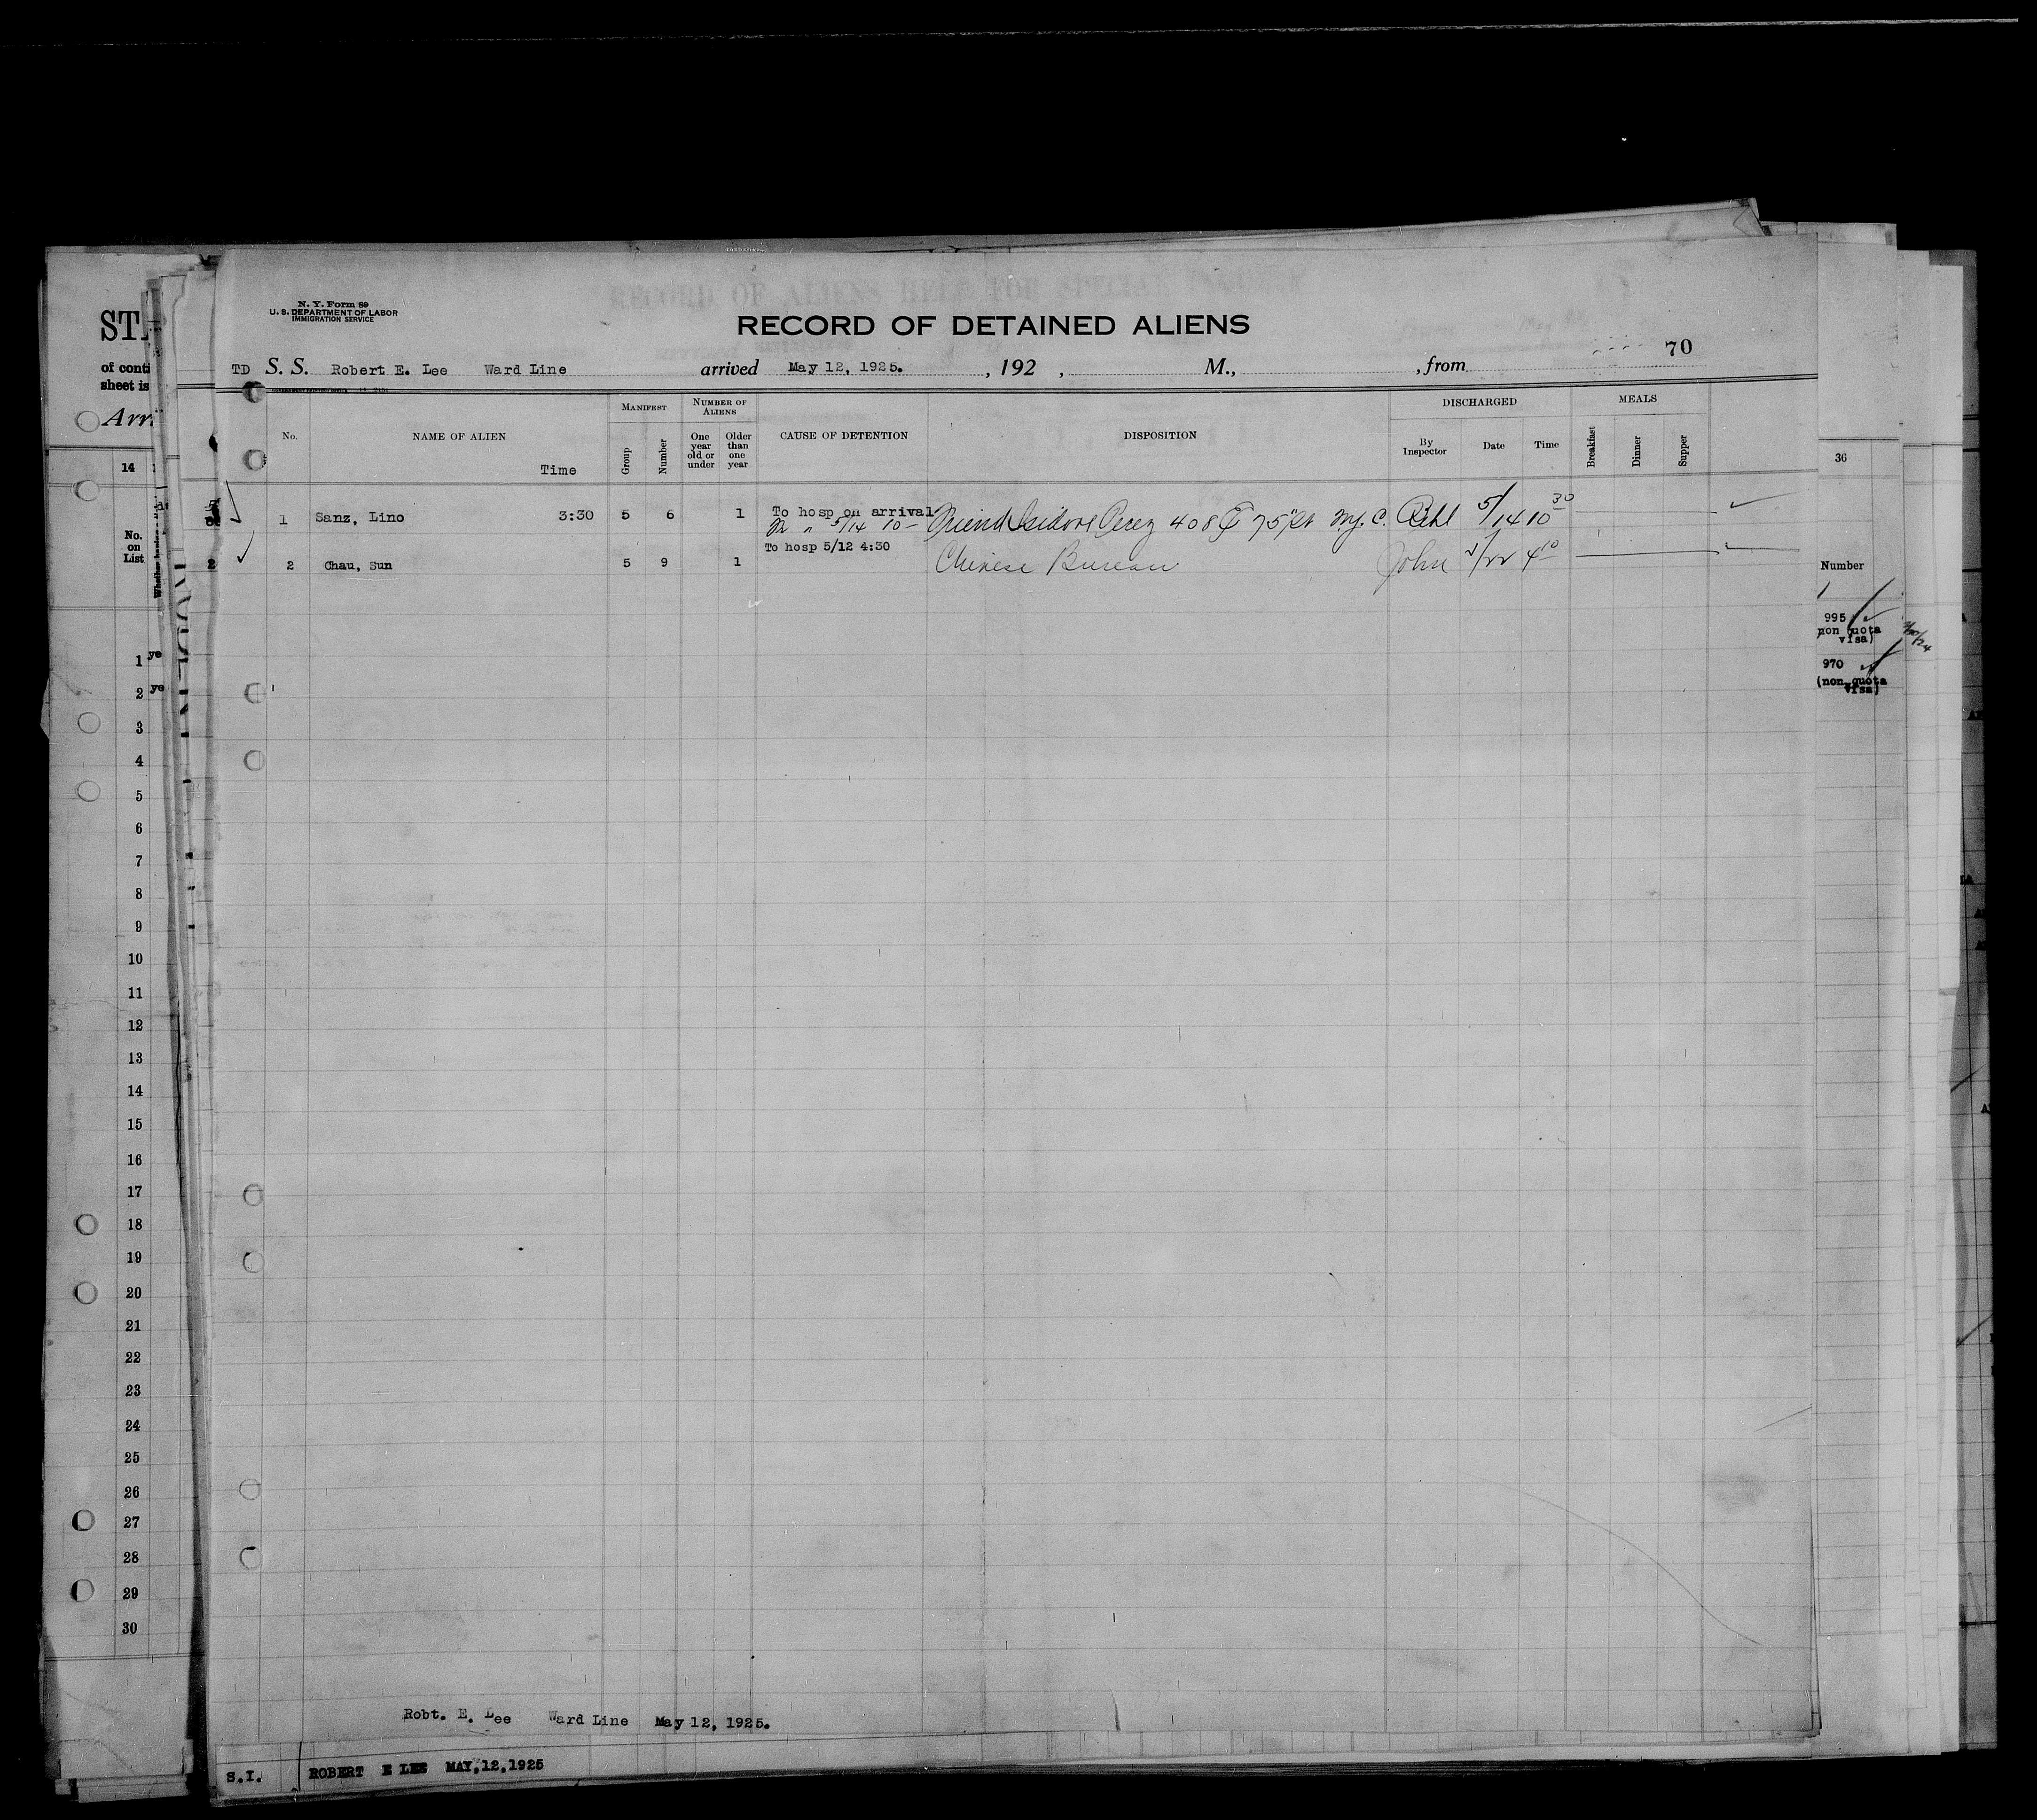 N. Y. Form 89
U. S. DEPARTMENT OF LABOR
IMMIGRATION SERVICE
RECORD OF ALIENS HELD FOR SPECIAL INQUIRY
RECORD OF DETAINED ALIENS
70
TD S. S. Robert E. Lee Ward Line arrived May 12, 1925. , 192 , M., , from
No. NAME OF ALIEN Time
MANIFEST Group Number
NUMBER OF ALIENS One year old or under Older than one year
CAUSE OF DETENTION DISPOSITION
DISCHARGED By Inspector Date Time
MEALS Breakfast Dinner Supper
1 Sanz, Lino 3:30 5 6 1 To hosp on arrival
5/14 10 - Friend Isidore Perez 408 E 75" St N.Y.C. 5/14 10 30
To hosp 5/12 4:30
2 Chau, Sun 5 9 1 Chinese Bureau John 4 10
Robt. E. Lee Ward Line May 12, 1925.
S.I. ROBERT E LEE MAY, 12, 1925
ST
of conti
sheet is
Arr
14
No.
on
List
1 ye
2 ye
3
4
5
6
7
8
9
10
11
12
13
14
15
16
17
18
19
20
21
22
23
24
25
26
27
28
29
30
36
Number
995
non quota
visa)
970
(non quota
visa)